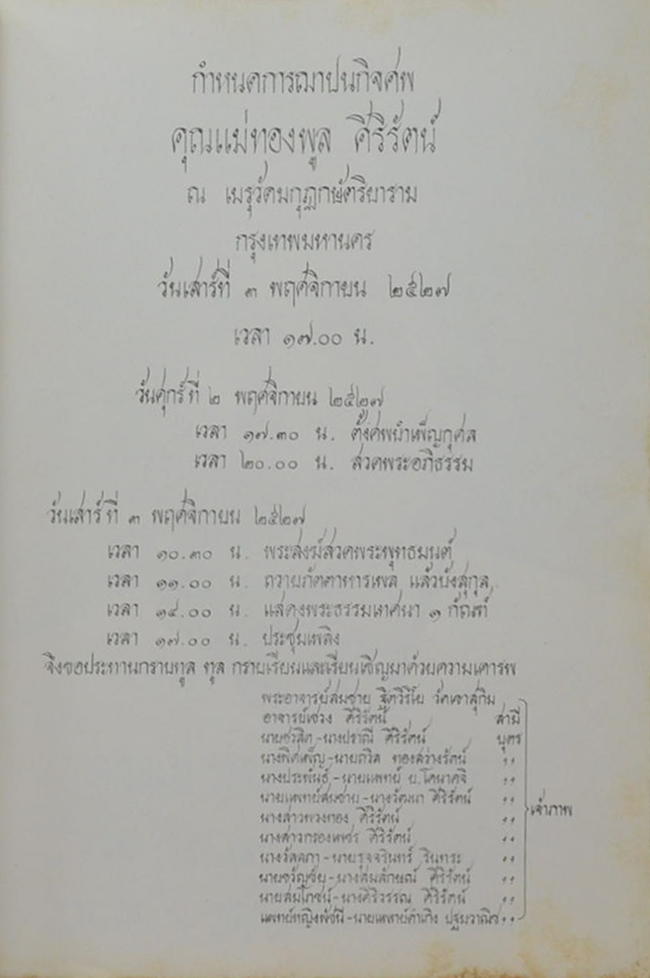 กำหนดการฌาปนกิจศพ
คุณแม่ทองพูล ศิริรัตน์
ณ เมรุวัดมกุฏกษัตริยาราม
กรุงเทพมหานคร
วันเสาร์ที่ ๓ พฤศจิกายน ๒๕๒๗
เวลา ๑๗.๐๐ น.
วันศุกร์ที่ ๒ พฤศจิกายน ๒๕๒๗
เวลา ๑๗.๓๐ น. ตั้งศพบำเพ็ญกุศล
เวลา ๒๐.๐๐ น. สวดพระอภิธรรม
วันเสาร์ที่ ๓ พฤศจิกายน ๒๕๒๗
เวลา ๑๐.๓๐ น. พระสงฆ์สวดพระพุทธมนต์
เวลา ๑๑.๐๐ น. ถวายภัตตาหารเพล แล้วบังสุกุล
เวลา ๑๔.๐๐ น. แสดงพระธรรมเทศนา ๑ กัณฑ์
เวลา ๑๗.๐๐ น. ประชุมเพลิง
จึงขอประทานกราบทูล ทูล กราบเรียนและเรียนเชิญมาด้วยความเคารพ
พระอาจารย์สมชาย ฐิตวิริโย วัดเขาสุกิม
อาจารย์เชวง ศิริรัตน์ สามี
นายชวลิต-นางปราณี ศิริรัตน์ บุตร
นางพิศเพ็ญ-นายถวิล ทองสว่างรัตน์ ,,
นางประพันธ์-นายแพทย์ บ. โคนาคจิ ,,
นายแพทย์สมชาย-นางวัฒนา ศิริรัตน์ ,,
นางสาวพวงทอง ศิริรัตน์ ,,
นางสาวกรองเพชร ศิริรัตน์ ,,
นางวัลลภา-นายรุจจรินทร์ รินทระ ,,
นายขวัญชัย-นางสมลักษณ์ ศิริรัตน์ ,,
นายสมโภชน์-นางศิริวรรณ ศิริรัตน์ ,,
แพทย์หญิงพัชนี-นายแพทย์ดำเกิง ปฐมวาณิช ,,
เจ้าภาพ